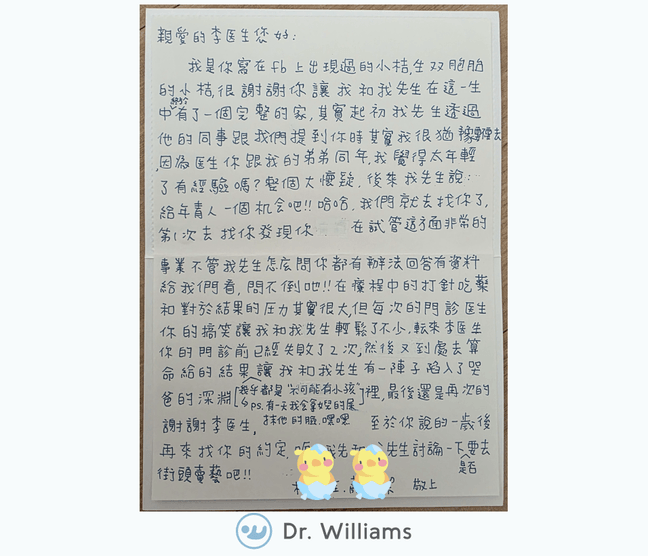 親愛的李医生您好:
我是你寫在fb上出現過的小桔,生双胞胎
的小桔,很謝謝你讓我和我先生在這一生
中終於有了一個完整的家,其實起初我先生透過
他的同事跟我們提到你時其實我很猶豫要去
,因為医生你跟我的弟弟同年,我覺得太年輕
了有經驗嗎?整個大懷疑.後來我先生說:
給年青人一個机会吧!!哈哈.我們就去找你了,
第1次去找你發現你 在試管這方面非常的
專業不管我先生怎麽問你都有辦法回答有資料
給我們看,問不倒吧!!在療程中的打針吃藥
和對於結果的压力其實很大,但每次的門診医生
你的搞笑讓我和我先生輕鬆了不小.転來李医生
你的門診前已經失敗了2次,然後又到處去算
命給的結果讓我和我先生有一陣子陷入了哭
爸的深淵[幾乎都是"不可能有小孩"]裡,最後還是再次的
ps.有一天我会拿女兒的屎
謝謝李医生, 抹他的臉.嘿嘿 至於你說的一歲後
再來找你的約定, 我先和 先生討論一下要去
街頭賣藝吧!! 是否
敬上
Dr. Williams